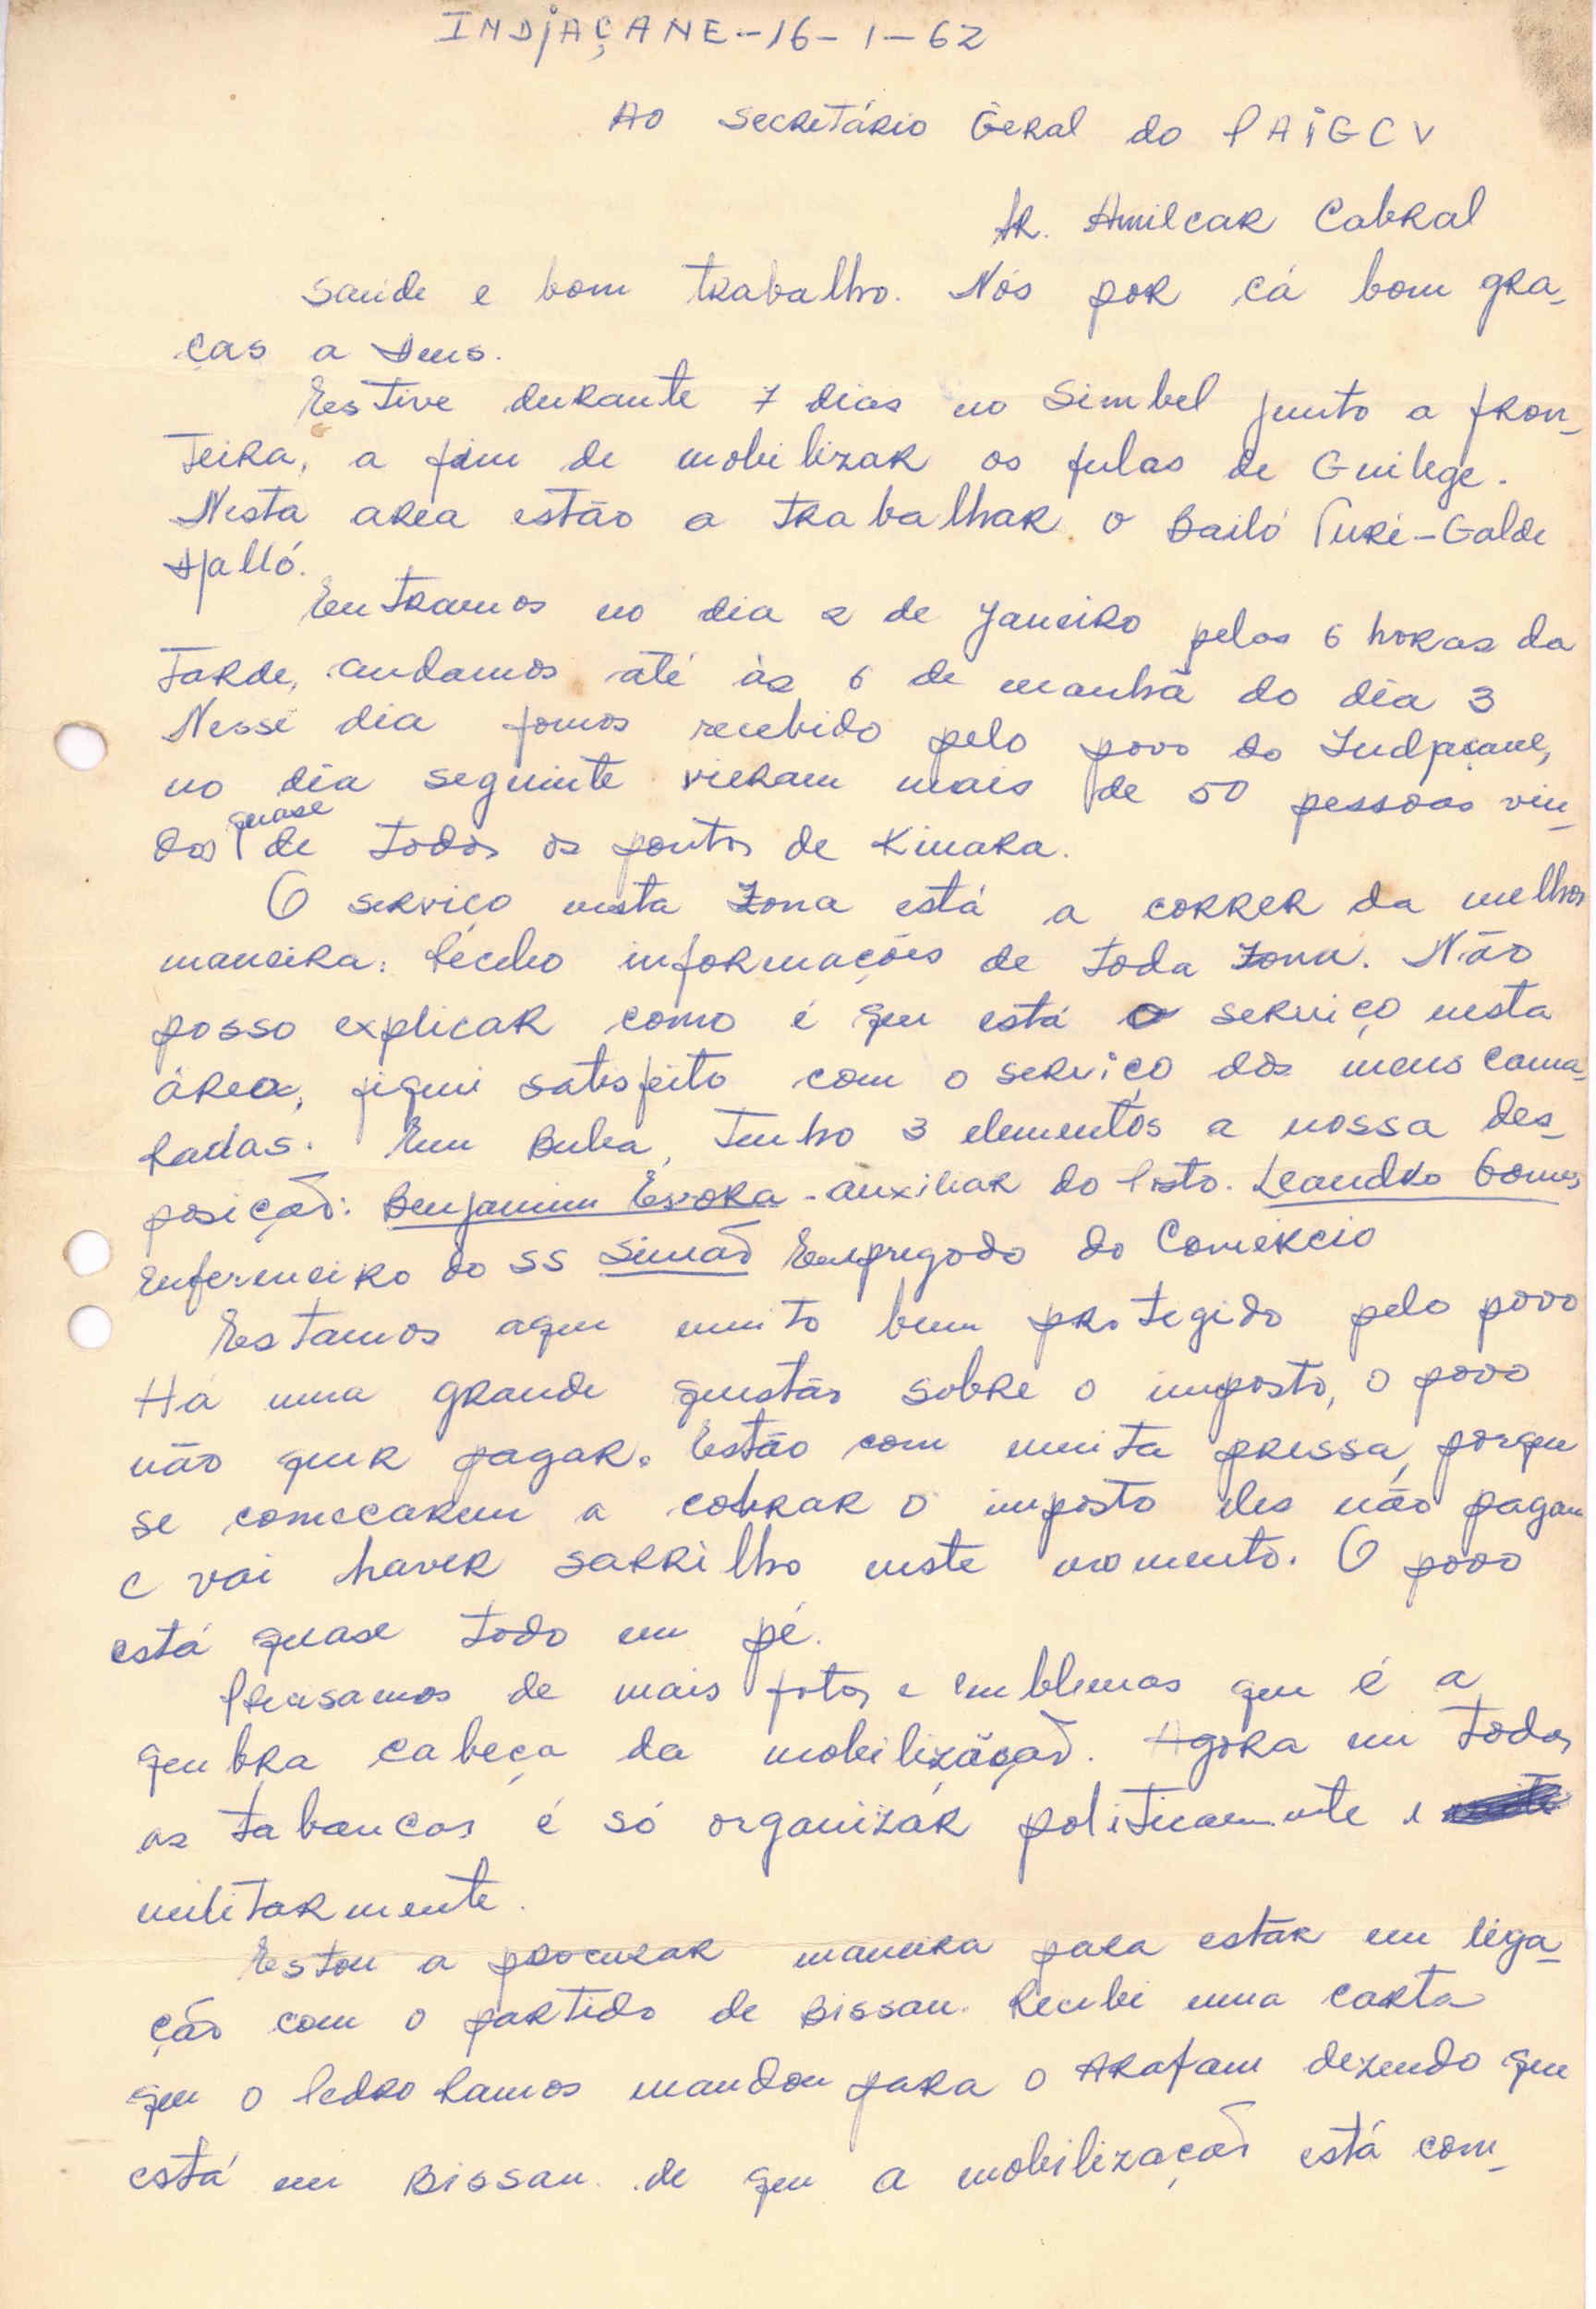 INDjAÇANE--16-1-62
Ao Secretário Geral do PAiGCV
Sr. Amilcar Cabral
Saúde e bom trabalho. Nós por cá bom gra-
ças a Deus.
Estive durante 7 dias no Simbel junto a fron-
teira, a fim de mobilizar os fulas de Guilege.
Nesta area estão a trabalhar o Bailó Turé-Galde
Djalló.
Entramos no dia 2 de Janeiro pelas 6 horas da
tarde, andamos até às 6 de manhã do dia 3
Nesse dia fomos recebido pelo povo do Indjaçane,
no dia seguinte vieram mais de 50 pessoas vin-
dos quase de todos os pontos de Kinara.
O serviço nesta zona está a correr da melhor
maneira. Recebo informações de toda zona. Não
posso explicar como é que está o serviço nesta
área, fiquei satisfeito com o serviço dos meus cama-
radas. Em Buba, tenho 3 elementos a nossa des-
posição: Benjamim Evora - auxiliar do Psto. Leandro Gomes
Enfermeiro do SS Simão Empregado do Comércio
Estamos aqui muito bem protegido pelo povo
Há uma grande questão sobre o imposto, o povo
não quer pagar. Estão com muita pressa, porque
se comecarem a cobrar o imposto eles não pagam
e vai haver sarrilho neste momento. O povo
está quase todo em pé.
Precisamos de mais fotos e emblemas que é a
quebra cabeça da mobilização. Agora em todas
as tabancas é só organizar politicamente e
militarmente.
Estou a procurar maneira para estar em liga-
ção com o partido de Bissau. Recebi uma carta
que o Pedro Ramos mandou para o Arafam dezendo que
está em Bissau de que a mobilização está com-